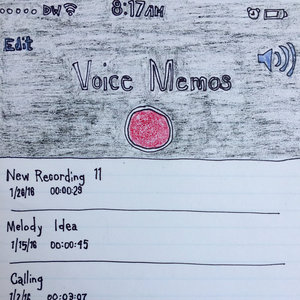 DW 8:17AM
Edit
Voice Memos
New Recording 11
1/26/16 00:00:29
Melody Idea
1/15/16 00:00:45
Calling
00:03:07